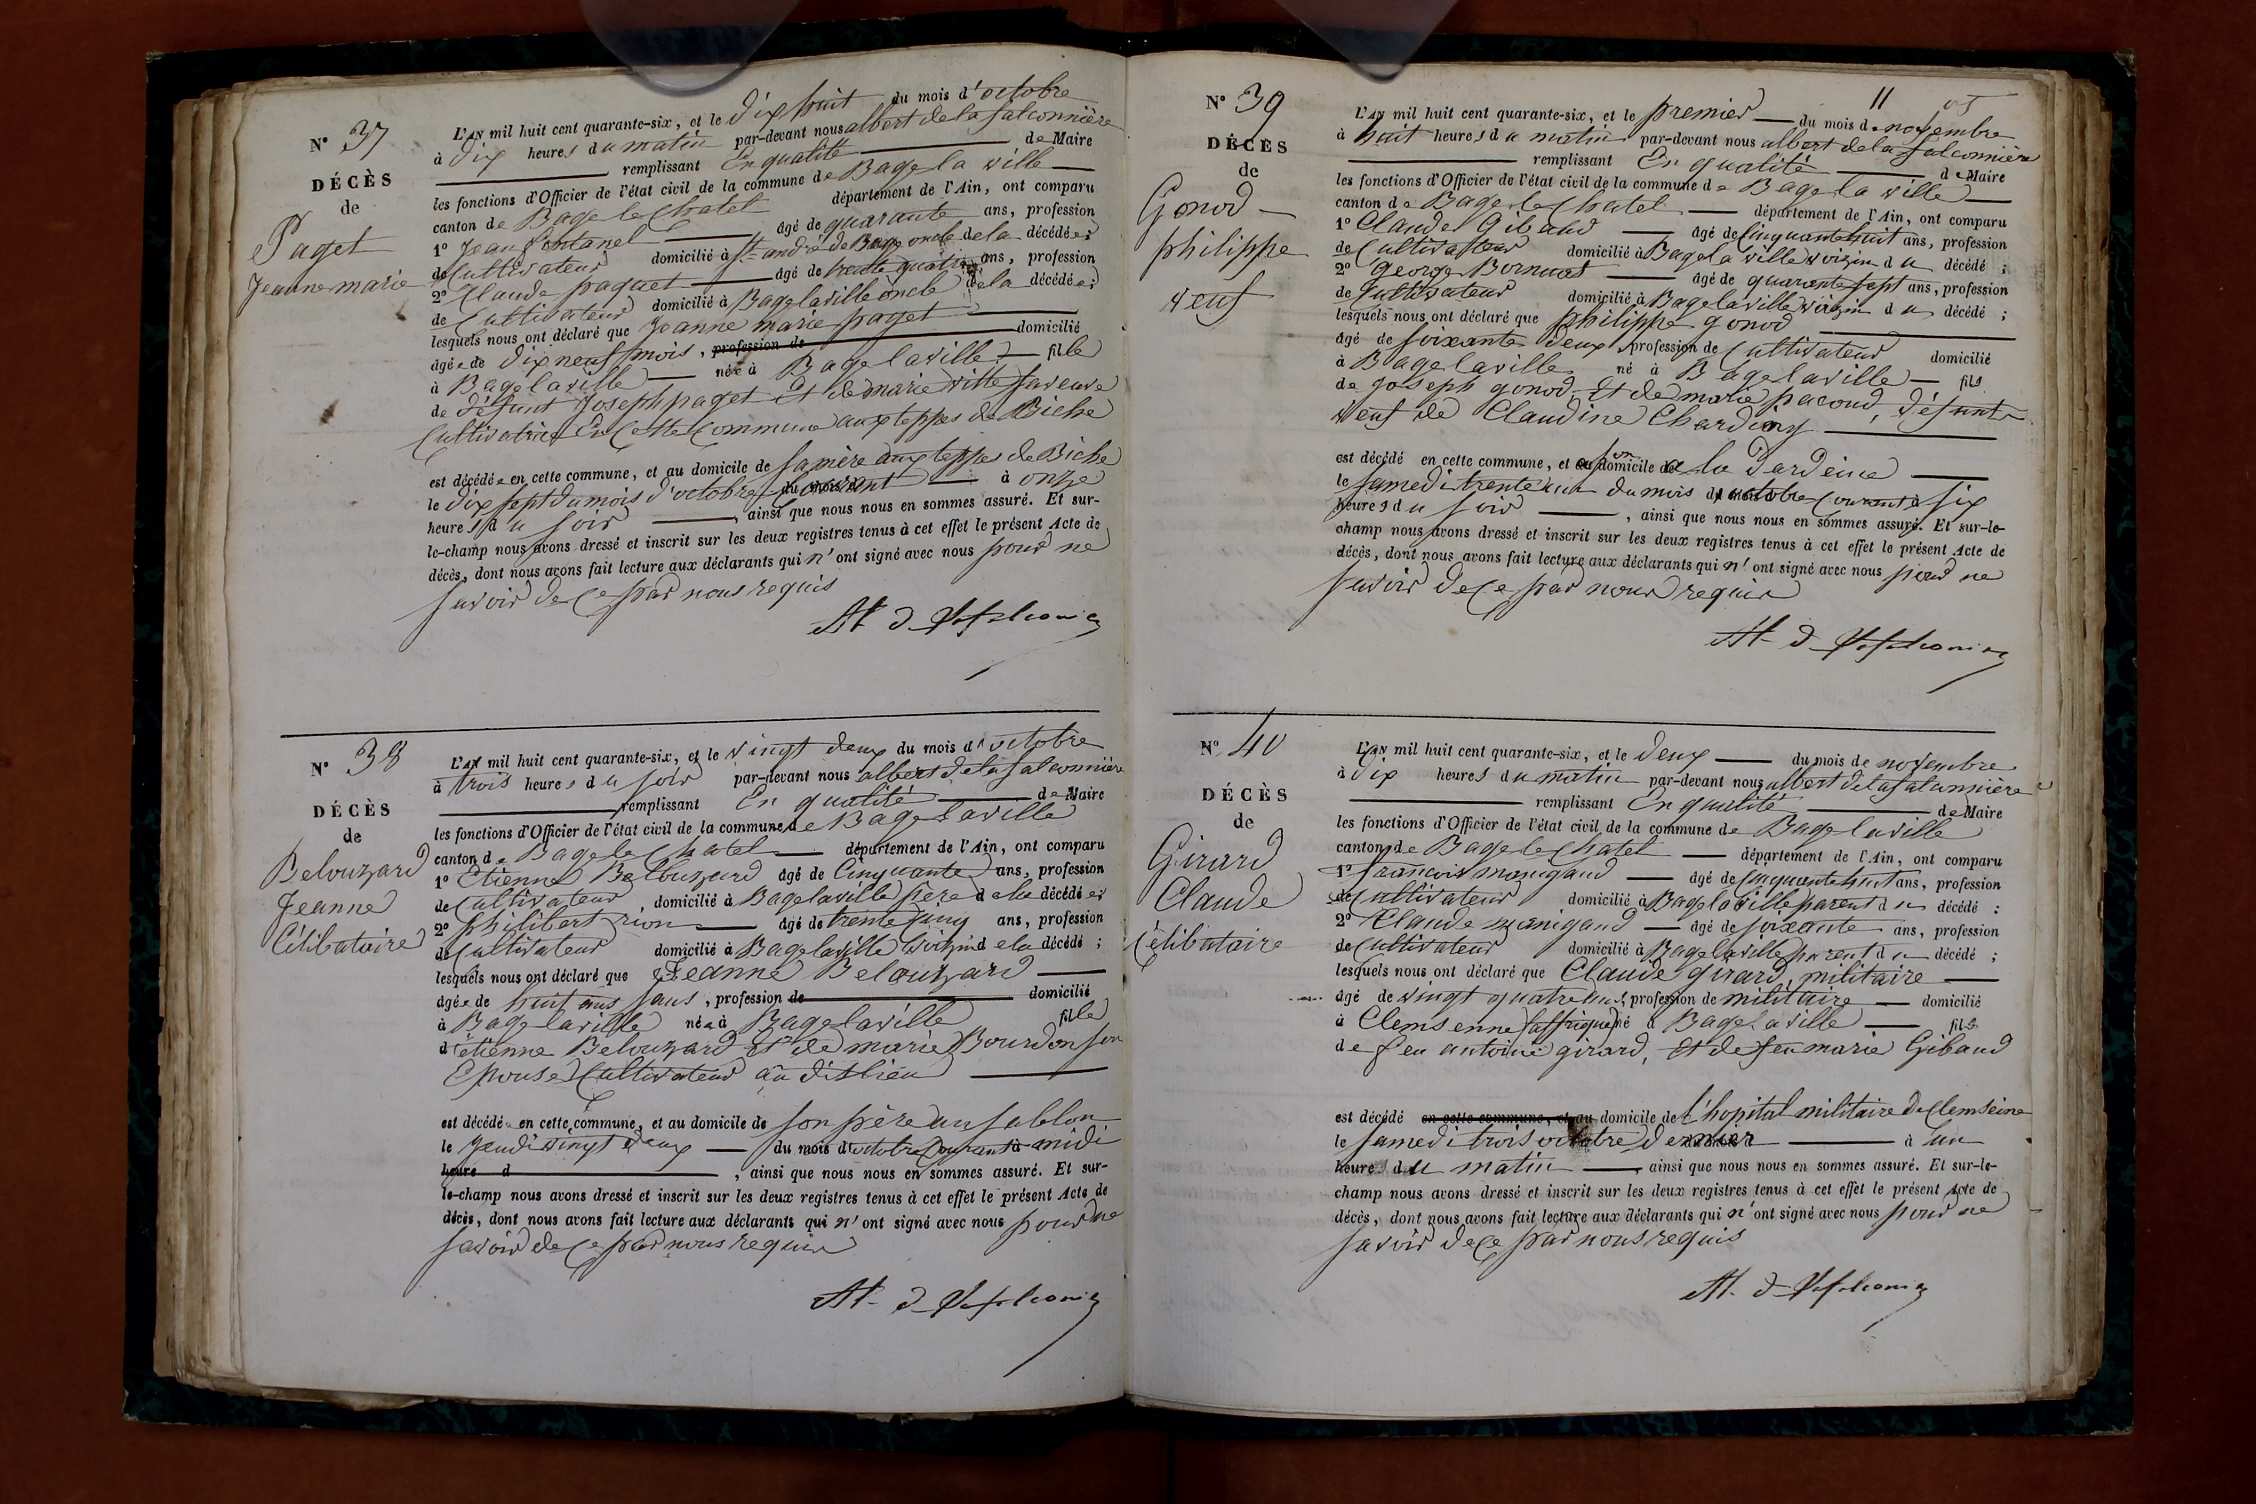 N° 37
DÉCÈS
de
Paget
Jeanne marie
L'AN mil huit cent quarante-six, et le dix huit du mois d'octobre
à dix heures du matin par-devant nous albert de la falconnière
remplissant En qualité de Maire
les fonctions d'Officier de l'état civil de la commune de Bage la ville
canton de Bage le Chatel département de l'Ain, ont comparu
1° Jean fontanel âgé de quarante ans, profession
de Cultivateur domicilié à St andré de Bage oncle de la décédée;
2° Claude paquet âgé de trente quatre ans, profession
de Cultivateur domicilié à Bage la ville oncle de la décédée;
lesquels nous ont déclaré que Jeanne marie paget
âgée de dix neuf mois, profession de domicilié
à Bage la ville née à Bage la ville fille
de défunt Joseph paget Et de marie vitte sa veuve
Cultivatrice En Cette Commune aux teppes de Biche
est décédée en cette commune, et au domicile de sa mère aux teppes de Biche
le dix sept du mois d'octobre Courant à onze
heures du soir, ainsi que nous nous en sommes assuré. Et sur-
le-champ nous avons dressé et inscrit sur les deux registres tenus à cet effet le présent Acte de
décès, dont nous avons fait lecture aux déclarants qui n'ont signé avec nous pour ne
savoir de Ce par nous requis
N° 38
DÉCÈS
de
Belouzard
Jeanne
Célibataire
L'AN mil huit cent quarante-six, et le vingt deux du mois d'octobre
à trois heures du soir par-devant nous albert de la falconnière
remplissant En qualité de Maire
les fonctions d'Officier de l'état civil de la commune de Bage la ville
canton de Bage le Chatel département de l'Ain, ont comparu
1° Etienne Belouzard âgé de Cinquante ans, profession
de Cultivateur, domicilié à Bage la ville père de la décédée;
2° philibert rion âgé de trente cinq ans, profession
de Cultivateur domicilié à Bage la ville voizin de la décédé;
lesquels nous ont déclaré que Jeanne Belouzard
âgée de huit ans sans, profession de domicilié
à Bage la ville née à Bage la ville fille
d'étienne Belouzard Et de marie Bourdon son
Epouse Cultivateur au dit lieu
est décédée en cette commune, et au domicile de son père au sablon
le jeudi vingt deux du mois d'octobre Courant à midi
heure d, ainsi que nous nous en sommes assuré. Et sur-
le-champ nous avons dressé et inscrit sur les deux registres tenus à cet effet le présent Acte de
décès, dont nous avons fait lecture aux déclarants qui n'ont signé avec nous pour ne
savoir de Ce par nous requis
11
N° 39
DÉCÈS
de
Gonod
philippe
veuf
L'AN mil huit cent quarante-six, et le premier du mois de novembre
à huit heures du matin par-devant nous albert de la falconnière
remplissant En qualité de Maire
les fonctions d'Officier de l'état civil de la commune de Bage la ville
canton de Bage le Chatel département de l'Ain, ont comparu
1° Claude Gibaud âgé de Cinquante huit ans, profession
de Cultivateur domicilié à Bage la ville voizin du décédé;
2° George Bornuat âgé de quarente sept ans, profession
de Cultivateur domicilié à Bage la ville voizin du décédé;
lesquels nous ont déclaré que philippe gonod
âgé de soixante deux, profession de Cultivateur domicilié
à Bage la ville né à Bage la ville fils
de joseph gonod, Et de marie pacoud, défunts
veuf de Claudine Chardiny
est décédé en cette commune, et son domicile a la
le samedi trente un du mois d'octobre Courant à six
heures du soir, ainsi que nous nous en sommes assuré. Et sur-le-
champ nous avons dressé et inscrit sur les deux registres tenus à cet effet le présent Acte de
décès, dont nous avons fait lecture aux déclarants qui n'ont signé avec nous pour ne
savoir de Ce par nous requis
N° 40
DÉCÈS
de
Girard
Claude
Célibataire
L'AN mil huit cent quarante-six, et le deux du mois de novembre
à dix heures du matin par-devant nous albert de la falconnière
remplissant En qualité de Maire
les fonctions d'Officier de l'état civil de la commune de Bage la ville
canton de Bage le Chatel département de l'Ain, ont comparu
1° francois manigaud âgé de Cinquante huit ans, profession
de Cultivateur domicilié à Bage la ville parent du décédé:
2° Claude manigaud âgé de soixante ans, profession
de Cultivateur domicilié à Bage la ville parent du décédé;
lesquels nous ont déclaré que Claude girard, militaire
âgé de vingt quatre ans, profession de militaire domicilié
à Clemsenne (affrique) né à Bage la ville fils
de feu antoine girard, Et de feu marie Gibaud
est décédé en cette commune, et au domicile de l'hopital militaire de Clemseine
le samedi trois octobre dernier à l'un
heures du matin ainsi que nous nous en sommes assuré. Et sur-le-
champ nous avons dressé et inscrit sur les deux registres tenus à cet effet le présent Acte de
décès, dont nous avons fait lecture aux déclarants qui n'ont signé avec nous pour ne
savoir de Ce par nous requis